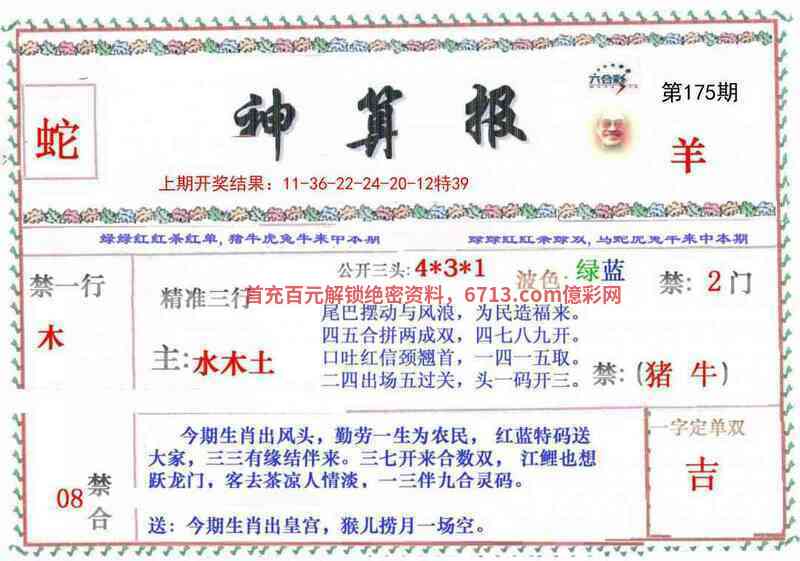 六合彩
第175期
蛇
神算报
羊
上期开奖结果：11-36-22-24-20-12特39
绿绿红红条红单,猪牛虎兔牛来中本期
绿绿红红条绿双,马蛇虎兔牛来中本期
禁一行
公开三头: 4*3*1
波色: 绿蓝
禁: 2门
精准三行
首充百元解锁绝密资料，6713.com億彩网
木
尾巴摆动与风浪，为民造福来。
四五合拼两成双，四七八九开。
主:水木土
口吐红信颈翘首，一四一五取。
二四出场五过关，头一码开三。
禁:(猪 牛)
今期生肖出风头，勤劳一生为农民， 红蓝特码送
大家，三三有缘结伴来。三七开来合数双， 江鲤也想
跃龙门，客去茶凉人情淡，一三伴九合灵码。
一字定单双
吉
08禁合
送：今期生肖出皇宫，猴儿捞月一场空。